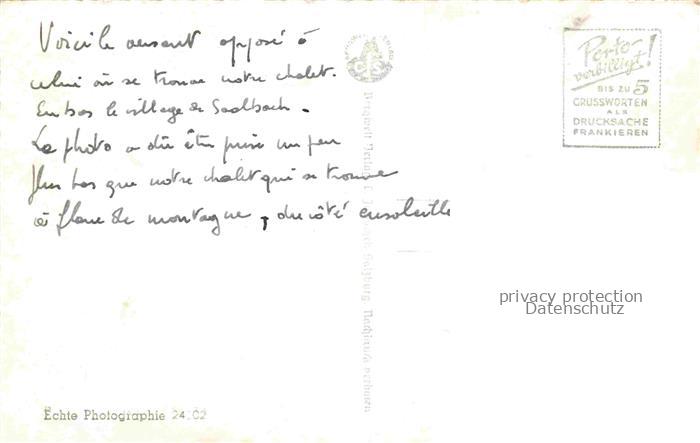 Voici le versant opposé à
celui où se trouve notre chalet.
En bas le village de Saalbach.
La photo a dû être prise un peu
plus bas que notre chalet qui se trouve
à flanc de montagne, du côté ensoleillé
Porto-
verbilligt!
BIS ZU 5
GRUSSWORTEN
ALS
DRUCKSACHE
FRANKIEREN
Salzburg. Nachdruck verboten
privacy protection
Datenschutz
Echte Photographie 24:02